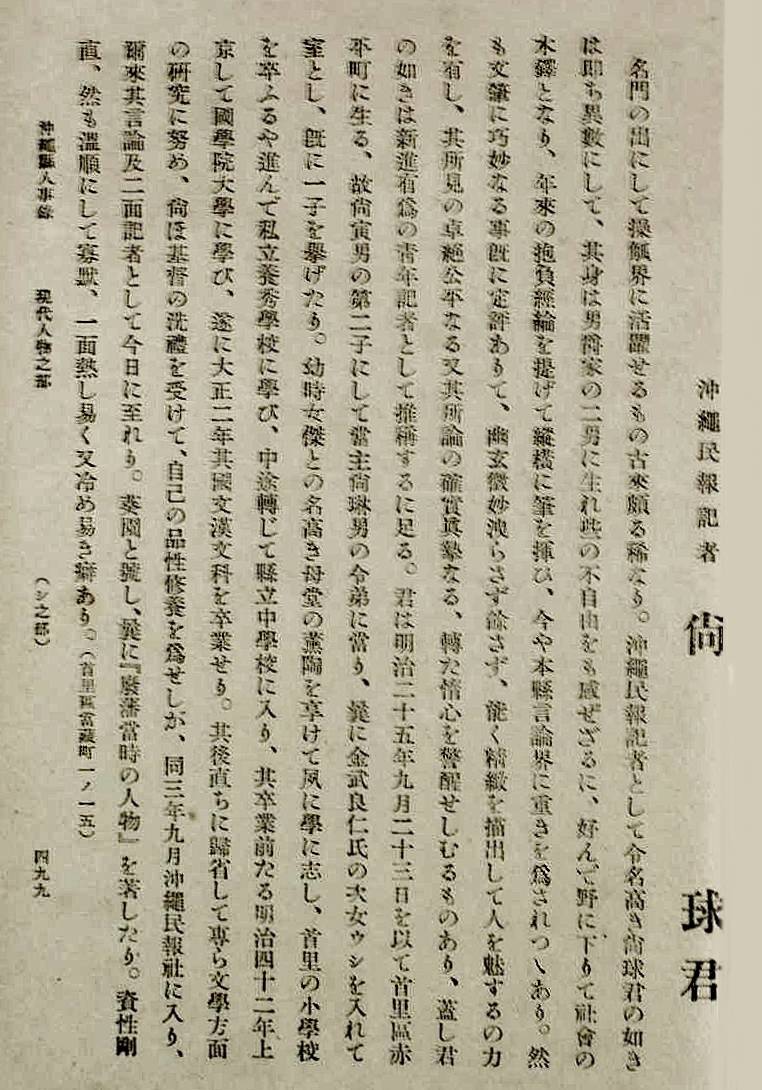 沖繩民報記者 尙 球君
名門の出にして操觚界に活躍せるもの古來頗る稀なり。沖繩民報記者として令名高き尙球君の如き
は卽ち異數にして、其身は男爵家の二男に生れ些の不自由をも感ぜざるに、好んで野に下りて社會の
木鐸となり、年來の抱負經綸を提げて縱橫に筆を揮ひ、今や本縣言論界に重きを爲されつゝあり。然
も文筆に巧妙なる事旣に定評ありて、幽玄微妙洩らさず餘さず、能く精緻を描出して人を魅するの力
を有し、其所見の卓絕公平なる又其所論の確實眞摯なる、轉た惰心を警醒せしむるものあり、蓋し君
の如きは新進有爲の靑年記者として推稱するに足る。君は明治二十五年九月二十三日を以て首里區赤
平町に生る、故尙寅男の第二子にして當主尙琳男の令弟に當り、曩に金武良仁氏の次女ウシを入れて
室とし、旣に一子を擧げたり。幼時女傑との名高き母堂の薰陶を享けて夙に學に志し、首里の小學校
を卒ふるや進んで私立養秀學校に學び、中途轉じて縣立中學校に入り、其卒業前たる明治四十二年上
京して國學院大學に學び、遂に大正二年其國文漢文科を卒業せり。其後直ちに歸省して專ら文學方面
の硏究に努め、尙ほ基督の洗禮を受けて、自己の品性修養を爲せしが、同三年九月沖繩民報社に入り、
爾來其言論及二面記者として今日に至れり。葵園と號し、曩に『廢藩當時の人物』を著したり。資性剛
直、然も溫順にして寡默、一面熱し易く又冷め易き癖あり。（首里區當藏町一ノ一五）
沖繩縣人事錄 現代人物之部 （シ之部） 四九九